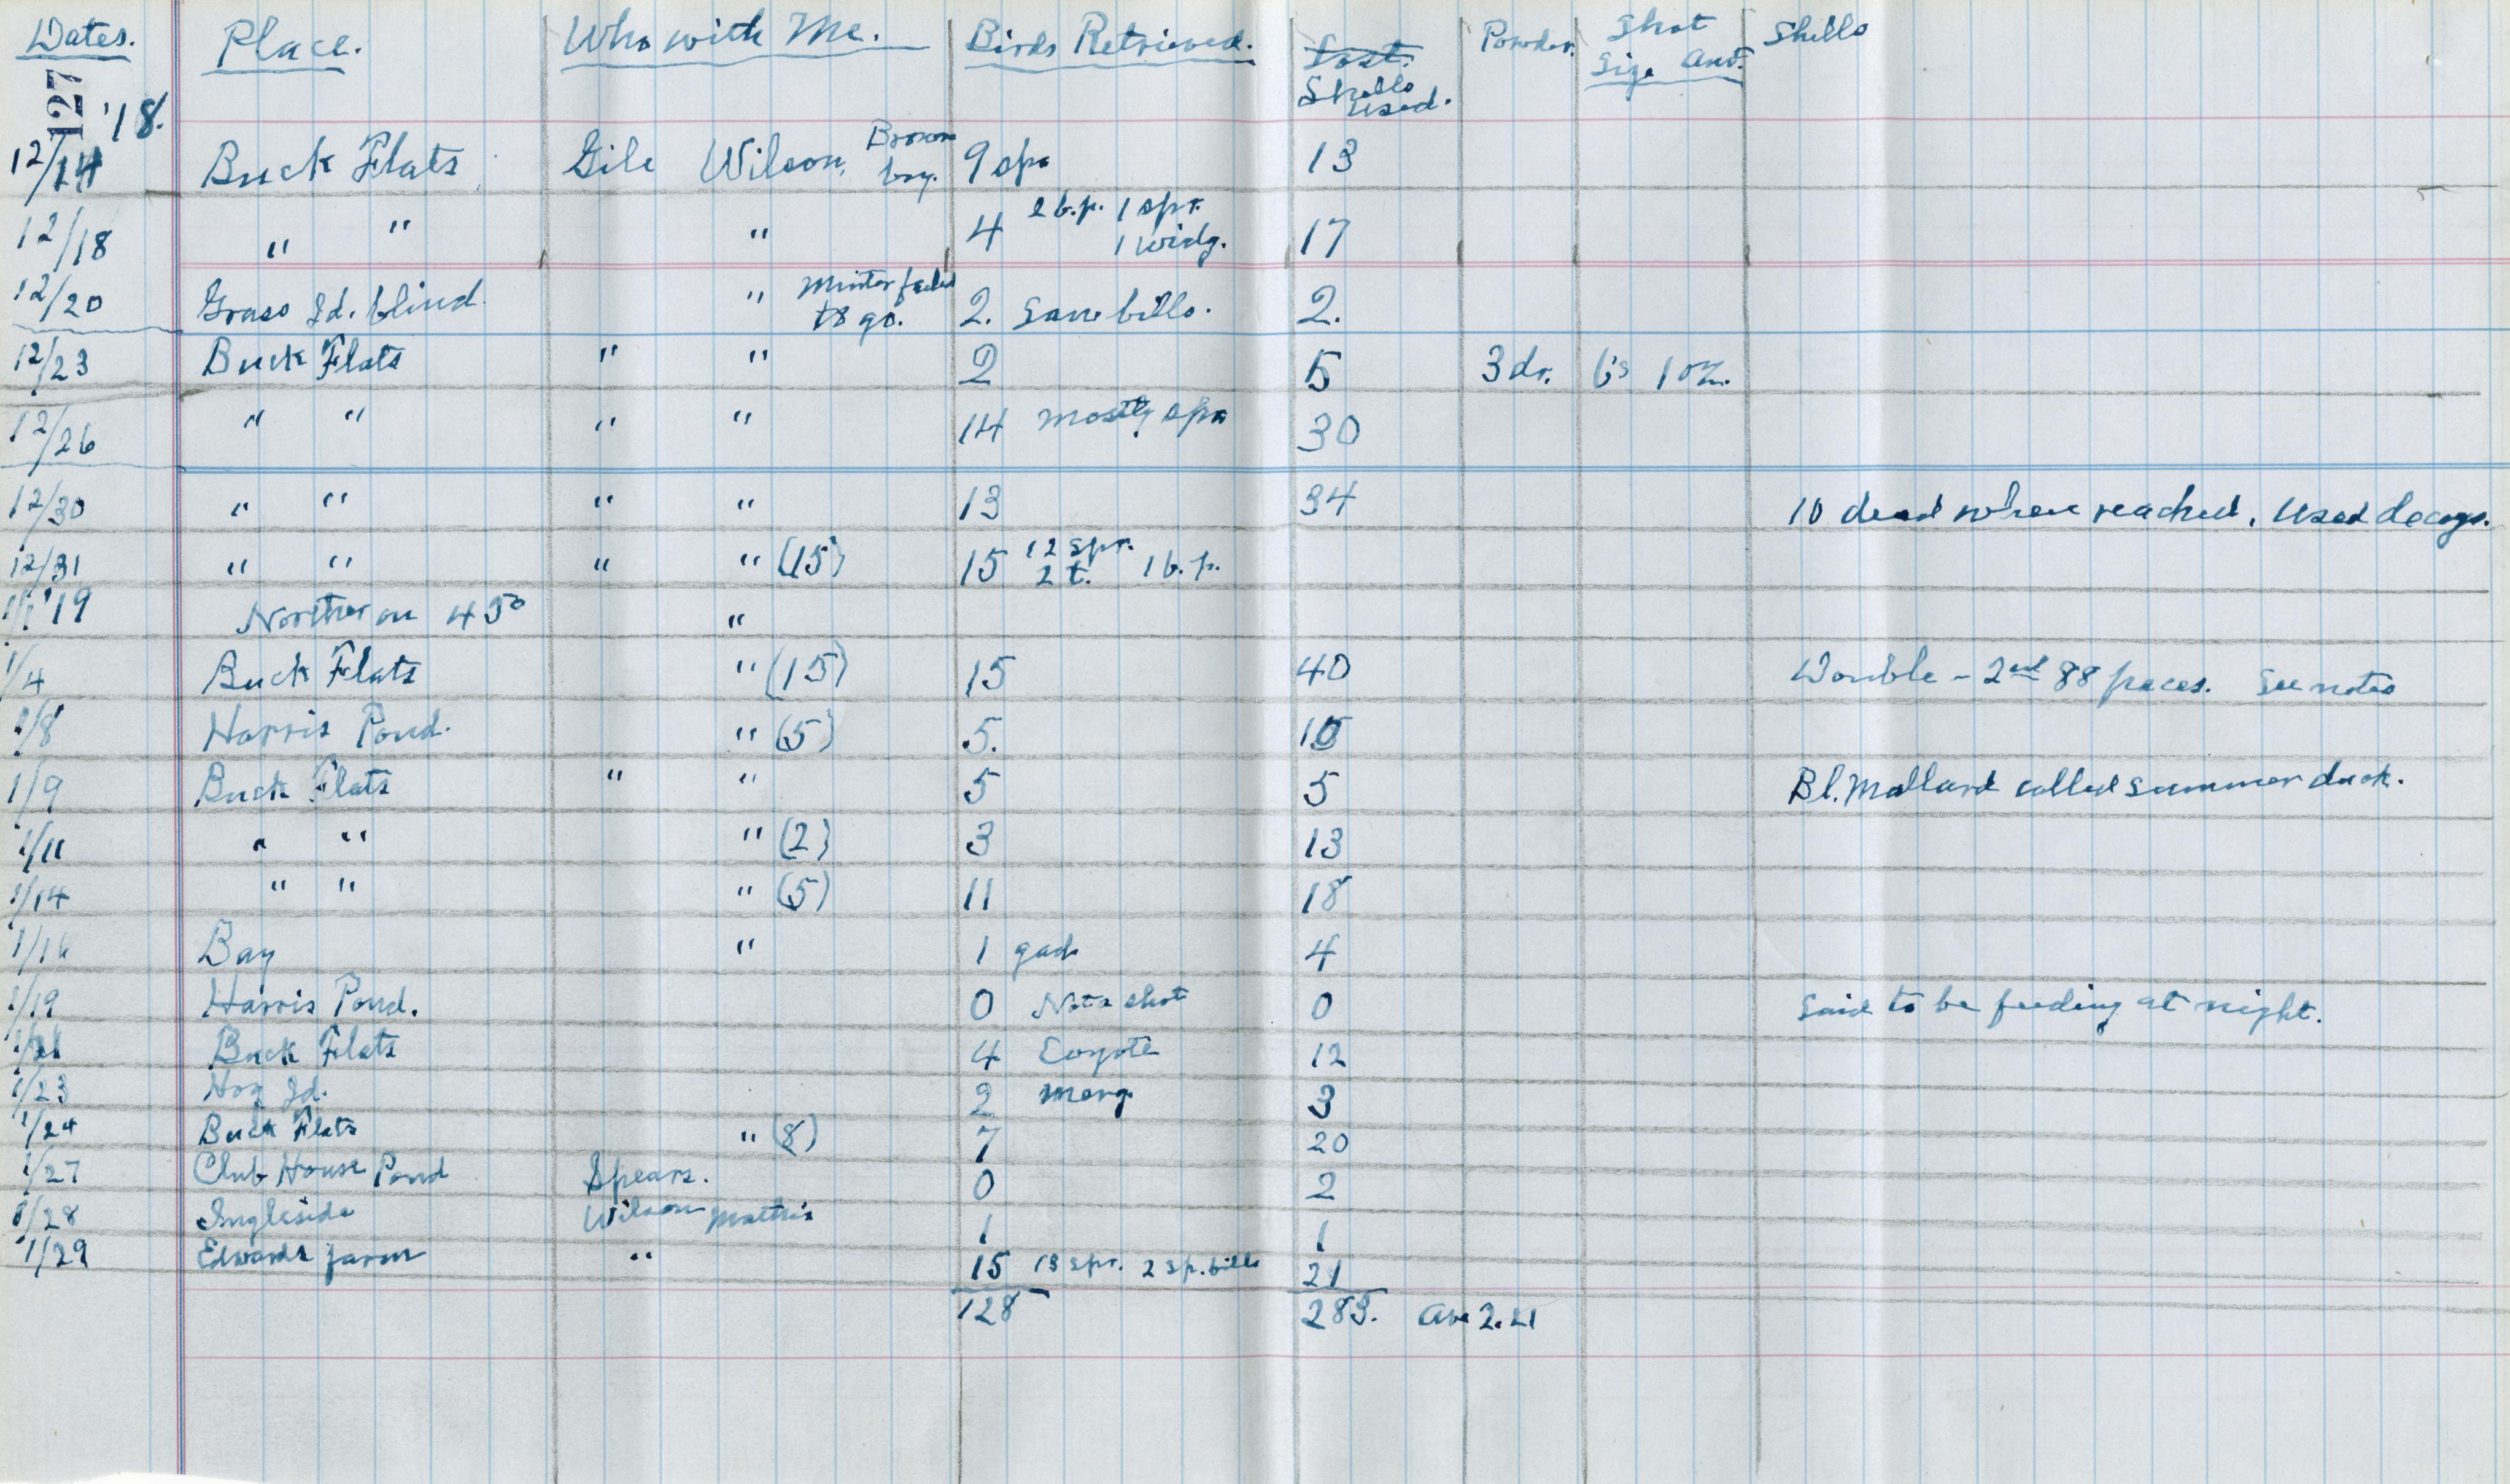 Dates. Place. Who with Me. Birds Retrieved. Lost. Shells used. Powder. Shot Size Amt. Shells
127 '18.
12/14 Buck Flats Gile Wilson, Brown boy. 9 spr 13
12/18 " " " 4 2 b.p. 1 spr. 1 widg. 17
12/20 Grass Id. blind " Minter failed to go. 2. Sawbills. 2.
12/23 Buck Flats " " 2 5 3 dr. 6's 1 oz.
12/26 " " " " 14 mostly spr 30
12/30 " " " " 13 34 10 dead when reached. Used decoys.
12/31 " " " " (15) 15 12 spr. 2 t. 1 b.p.
1/1 '19 Norther on 45° "
1/4 Buck Flats " (15) 15 40 Double - 2nd 88 paces. See notes
1/8 Harris Pond. " (5) 5. 15
1/9 Buck Flats " " 5 5 Bl. Mallard called summer duck.
1/11 " " " (2) 3 13
1/14 " " " (5) 11 18
1/16 Bay " 1 gad. 4
1/19 Harris Pond. 0 Not a shot 0 Said to be feeding at night.
1/21 Buck Flats 4 Coyote 12
1/23 Hog Id. 2 merg. 3
1/24 Buck Flats " (8) 7 20
1/27 Club House Pond Spears. 0 2
1/28 Ingleside Wilson Mathis 1 1
1/29 Edwards farm " 15 13 spr. 2 sp. bills 21
128 283. Av. 2.21